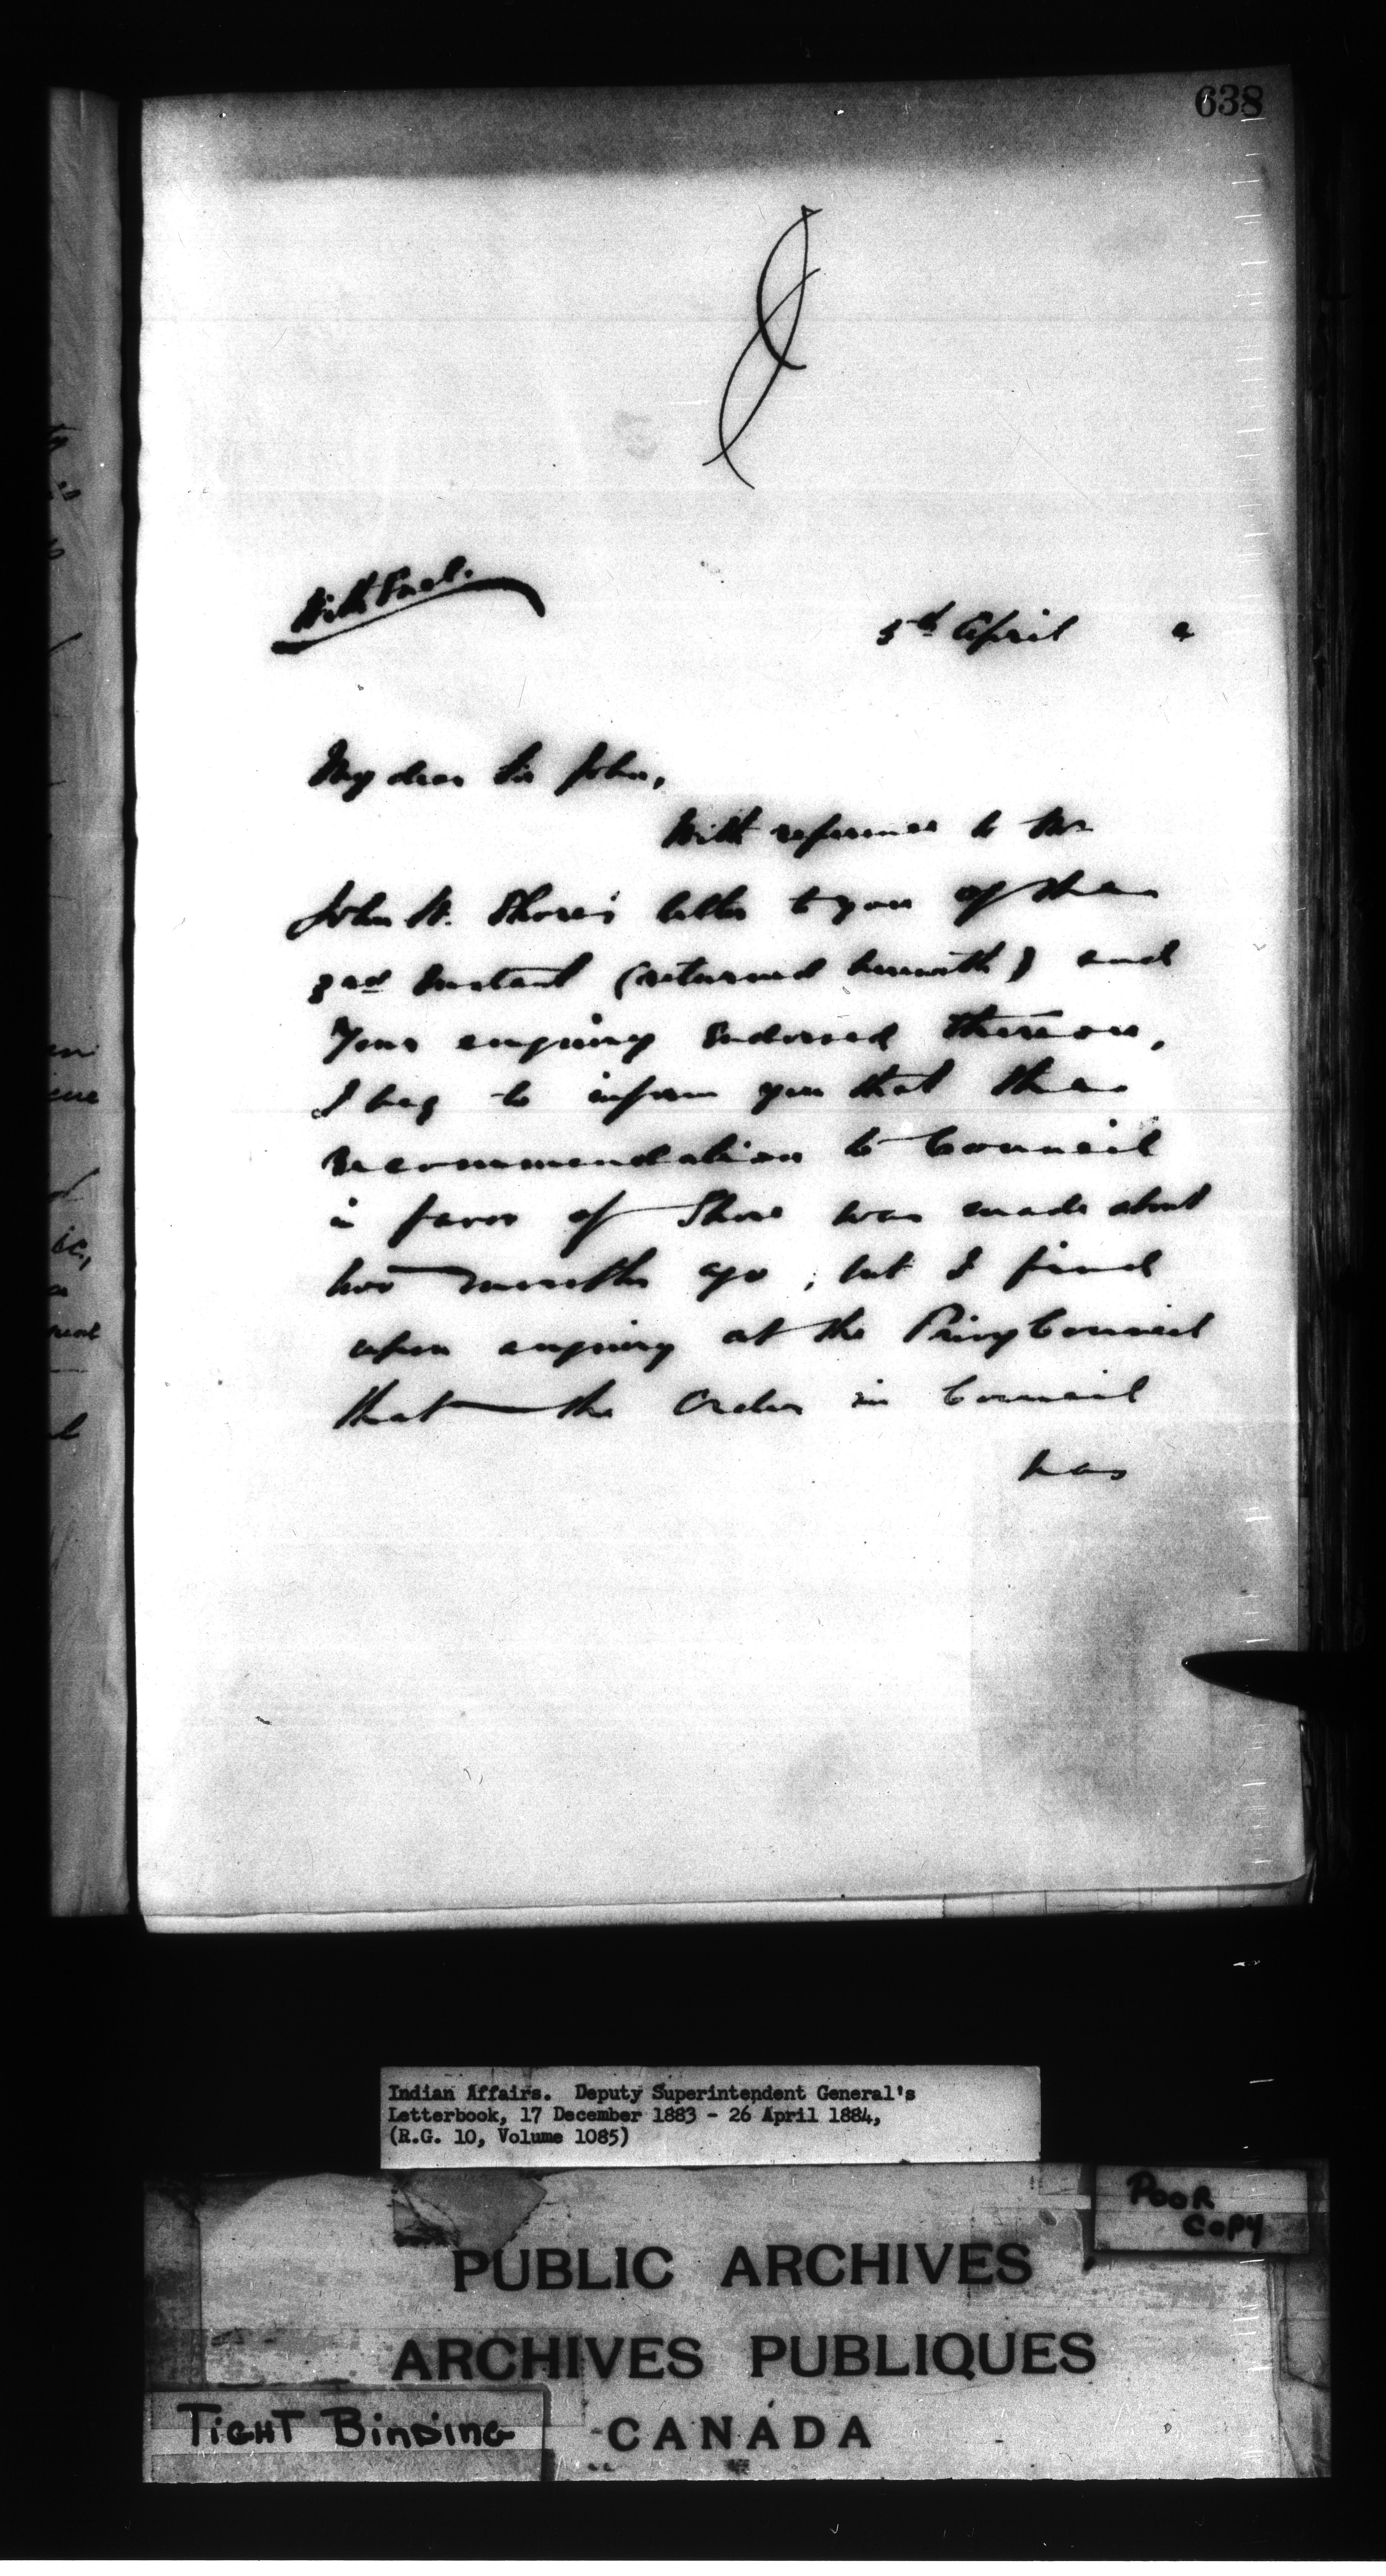 638
With Encl.
5th April 4
My dear Sir John,
With reference to Mr
John W. Shore's letter to you of the
3rd Instant (returned herewith) and
Your enquiry endorsed thereon,
I beg to inform you that the
recommendation to Council
in favor of Shore was made about
two months ago, but I find
upon enquiry at the Privy Council
that the Order in Council
has
Indian Affairs. Deputy Superintendent General's
Letterbook, 17 December 1883 - 26 April 1884,
(R.G. 10, Volume 1085)
POOR
COPY
PUBLIC ARCHIVES
ARCHIVES PUBLIQUES
TIGHT BINDING
CANADA